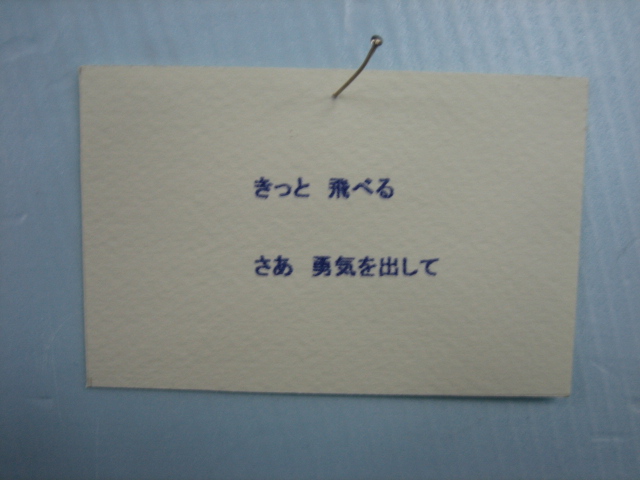 きっと 飛べる
さあ 勇気を出して